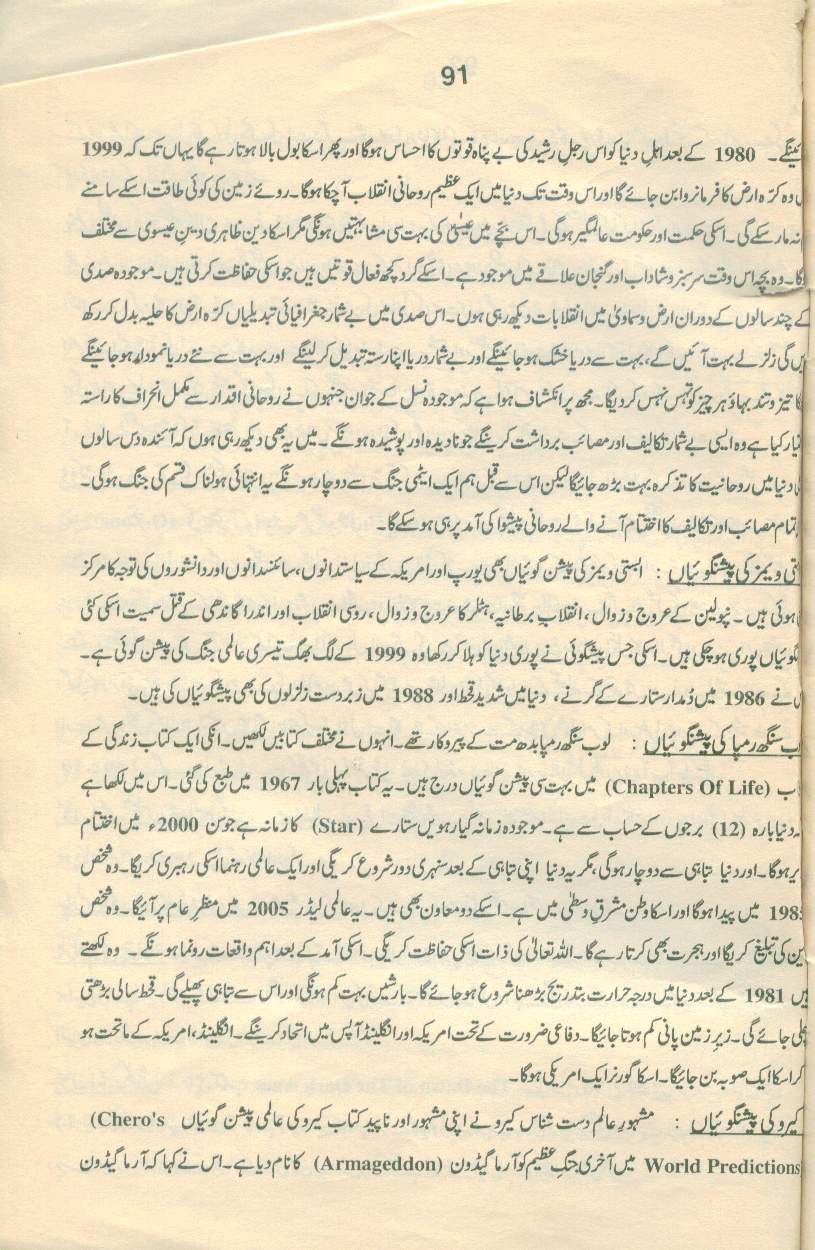 91
ئینگے۔ 1980 کے بعد اہلِ دنیا کو اس رجلِ رشید کی بے پناہ قوتوں کا احساس ہوگا اور پھر اسکا بول بالا ہوتا رہے گا یہاں تک کہ 1999
وہ کرّہ ارض کا فرمانروا بن جائے گا اور اس وقت تک دنیا میں ایک عظیم روحانی انقلاب آچکا ہوگا۔ روئے زمین کی کوئی طاقت اسکے سامنے
نہ مار سکے گی۔ اسکی حکمت اور حکومت عالمگیر ہوگی۔ اس بچے میں عیسیٰؑ کی بہت سی مشابہتیں ہونگی مگر اسکا دین ظاہری دینِ عیسوی سے مختلف
گا۔ وہ بچہ اس وقت سرسبز و شاداب اور گنجان علاقے میں موجود ہے۔ اسکے گرد کچھ فعال قوتیں ہیں جو اسکی حفاظت کرتی ہیں۔ موجودہ صدی
کے چند سالوں کے دوران ارض و سماوی میں انقلابات دیکھ رہی ہوں۔ اس صدی میں بے شمار جغرافیائی تبدیلیاں کرّہ ارض کا حلیہ بدل کر رکھ
یں گی زلزلے بہت آئیں گے، بہت سے دریا خشک ہوجائینگے اور بے شمار دریا اپنا رستہ تبدیل کر لینگے اور بہت سے نئے دریا نمودار ہو جائینگے
کا تیز و تند بہاؤ ہر چیز کو تہس نہس کر دیگا۔ مجھ پر انکشاف ہوا ہے کہ موجودہ نسل کے جوان جنہوں نے روحانی اقدار سے مکمل انحراف کا راستہ
تیار کیا ہے وہ ایسی بے شمار تکالیف اور مصائب برداشت کرینگے جو نادیدہ اور پوشیدہ ہونگے۔ میں یہ بھی دیکھ رہی ہوں کہ آئندہ دس سالوں
دنیا میں روحانیت کا تذکرہ بہت بڑھ جائیگا لیکن اس سے قبل ہم ایک ایٹمی جنگ سے دوچار ہونگے یہ انتہائی ہولناک قسم کی جنگ ہوگی۔
تمام مصائب اور تکالیف کا اختتام آنے والے روحانی پیشوا کی آمد پر ہی ہو سکے گا۔
تی ویمز کی پیشنگوئیاں : ایستی ویمز کی پیشن گوئیاں بھی یورپ اور امریکہ کے سیاستدانوں، سائنسدانوں اور دانشوروں کی توجہ کا مرکز
ہوئی ہیں۔ نپولین کے عروج و زوال، انقلابِ برطانیہ، ہٹلر کا عروج و زوال، روسی انقلاب اور اندرا گاندھی کے قتل سمیت اسکی کئی
نگوئیاں پوری ہو چکی ہیں۔ اسکی جس پیشنگوئی نے پوری دنیا کو ہلا کر رکھا وہ 1999 کے لگ بھگ تیسری عالمی جنگ کی پیشن گوئی ہے۔
نے 1986 میں دُمدار ستارے کے گرنے، دنیا میں شدید قحط اور 1988 میں زبردست زلزلوں کی بھی پیشنگوئیاں کی ہیں۔
ب سنگھ رمپا کی پیشنگوئیاں : لوب سنگھ رمپا بدھ مت کے پیروکار تھے۔ انہوں نے مختلف کتابیں لکھیں۔ انکی ایک کتاب زندگی کے
اب (Chapters Of Life) میں بہت سی پیشن گوئیاں درج ہیں۔ یہ کتاب پہلی بار 1967 میں طبع کی گئی۔ اس میں لکھا ہے
ہ دنیا بارہ (12) برجوں کے حساب سے ہے۔ موجودہ زمانہ گیارہویں ستارے (Star) کا زمانہ ہے جو سن 2000ء میں اختتام
یر ہوگا۔ اور دنیا تباہی سے دوچار ہوگی، مگر یہ دنیا اپنی تباہی کے بعد سنہری دور شروع کریگی اور ایک عالمی رہنما اسکی رہبری کریگا۔ وہ شخص
1985 میں پیدا ہوگا اور اسکا وطن مشرقِ وسطیٰ میں ہے۔ اسکے دو معاون بھی ہیں۔ یہ عالمی لیڈر 2005 میں منظرِ عام پر آئیگا۔ وہ شخص
ین کی تبلیغ کریگا اور ہجرت بھی کرتا رہے گا۔ اللہ تعالیٰ کی ذات اسکی حفاظت کریگی۔ اسکی آمد کے بعد اہم واقعات رونما ہونگے۔ وہ لکھتے
یں 1981 کے بعد دنیا میں درجہ حرارت بتدریج بڑھنا شروع ہو جائے گا۔ بارشیں بہت کم ہونگی اور اس سے تباہی پھیلے گی۔ قحط سالی بڑھتی
چلی جائے گی۔ زیرِ زمین پانی کم ہوتا جائیگا۔ دفاعی ضرورت کے تحت امریکہ اور انگلینڈ آپس میں اتحاد کرینگے۔ انگلینڈ، امریکہ کے ماتحت ہو
کر اسکا ایک صوبہ بن جائیگا۔ اسکا گورنر ایک امریکی ہوگا۔
کیرو کی پیشنگوئیاں : مشہورِ عالم دست شناس کیرو نے اپنی مشہور اور ناپید کتاب کیرو کی عالمی پیشن گوئیاں (Chero's
World Predictions) میں آخری جنگِ عظیم کو آرماگیڈون (Armageddon) کا نام دیا ہے۔ اس نے کہا کہ آرماگیڈون